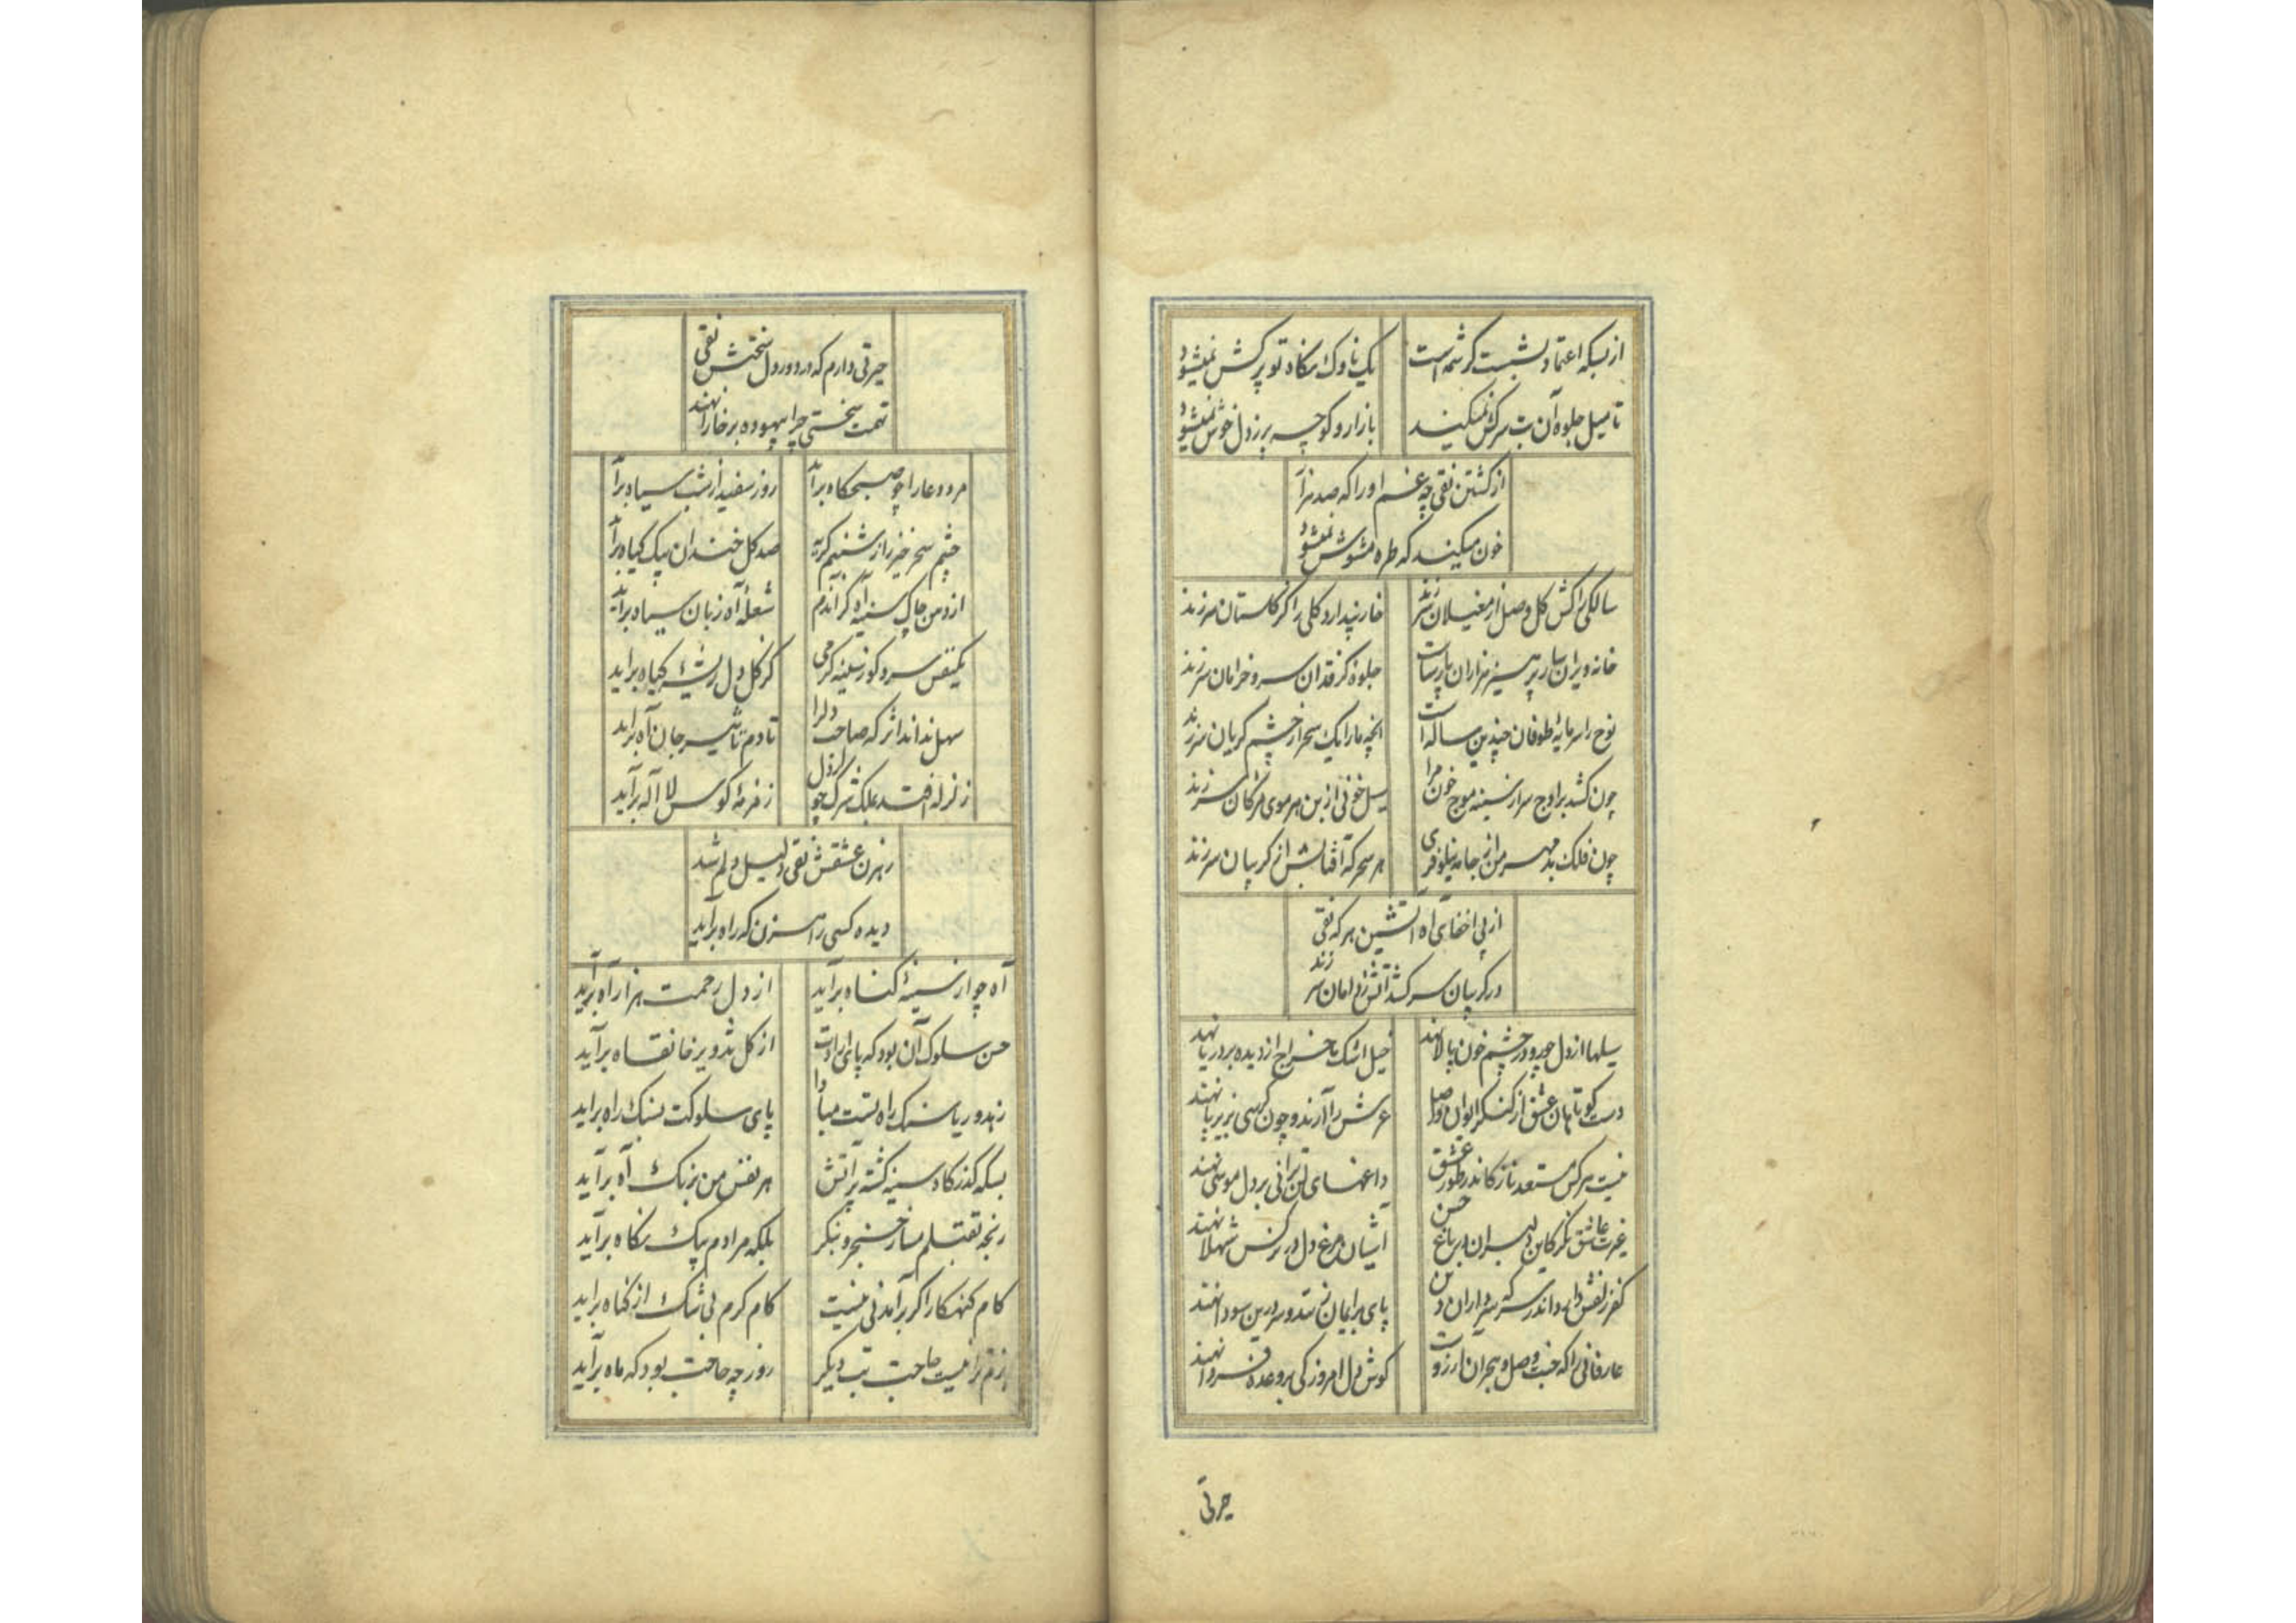 از بسکه اعتماد بشست کرشمه است یک ناوک نکاه تو پرکش نمیشود
تا میل جلوه آن بت سرکش نمیکند بازار و کوچه پر ز دل خوش نمیشود
از کشتن نقی چه غم او را که صد هزار
خون میکند که طره مشوش نمیشود
سالکی را کش کل وصل از مغیلان سر زند خار پندارد کلی را کز کلستان سر زند
خانه ویران ساز پرهیز هزاران پارساست جلوه کز قد آن سرو خرامان سر زند
نوح را سرمایهٔ طوفان چندین ساله است انچه ما را یک سحر از چشم کریان سر زند
چون کشد بر اوج سر از سینه موج خون مرا سیل خونی از بن هر موی مژکان سر زند
چون فلک بد مهر من از جامه نیلوفری هر سحر که آفتابش از کریبان سر زند
از پی اخفای آه آتشین هر که نقی
در کریبان سر کشد آتش ز دامان سر زند
سیلها از دل چو رو در چشم خون پالا نهند خیل اشک ما خراج از دیده بر دریا نهند
دست کوتاهان عشق از کنکر ایوان وصل عرش را آرند و چون کرسی بزیر پا نهند
نیست هر کس مستعد ناز کاندر طور عشق داغهای لن ترانی بر دل موسی نهند
غیرت عاشق نکر کاین دلبران در باغ حسن آشیان مرغ دل در نرکس شهلا نهند
کفر زلفش دام و اندر سر که سرداران دین پای بر ایمان زنند و سر درین سودا نهند
عارفانی را که جنت وصل و هجران آرزوست کوش دل امروز کی بر وعدهٔ فردا نهند
حیرتی
حیرتی دارم که در دور دل سختش نقی
تهمت سختی چرا بیهوده بر خارا نهند
مرد دعا را چو صبحکاه برآید روز سفید از شب سیاه برآید
چشم سحر خیز را ز شبنم کریه صد کل خندان بیک کیاه برآید
از دهن چاک سینه آه کر اندم شعلهٔ آه زبان سیاه برآید
یکنفس سرد کو ز سینه کرمی کز کل دل ریشهٔ کیاه براید
سهل نداند اثر که صاحب دل را تا دم تاثیر جان آه براید
زلزله افتد بملک شرک چو از دل زمزمهٔ کوس لا اله براید
رهزن عشقش نقی دلیل دلم شد
دیده کسی راهزن که راه برآید
آه چو از سینهٔ کناه برآید از دل رحمت هزار آه برآید
حسن سلوک آن بود که پای ارادت از کل تزویر خانقاه برآید
زهد و ریا سنک راه تست مبادا پای سلوکت بسنک راه براید
بسکه گذرکاه سینه کشته پر آتش هر نفس من برنک آه برآید
رنجه بقتلم مساز خنجر و بنکر بلکه مرادم بیک نکاه برآید
کام کنهکار اکر برآمدنی نیست کام کرم بی شک از کناه براید
بزم ترا نیست حاجت بت دیکر روز چه حاجت بود که ماه برآید